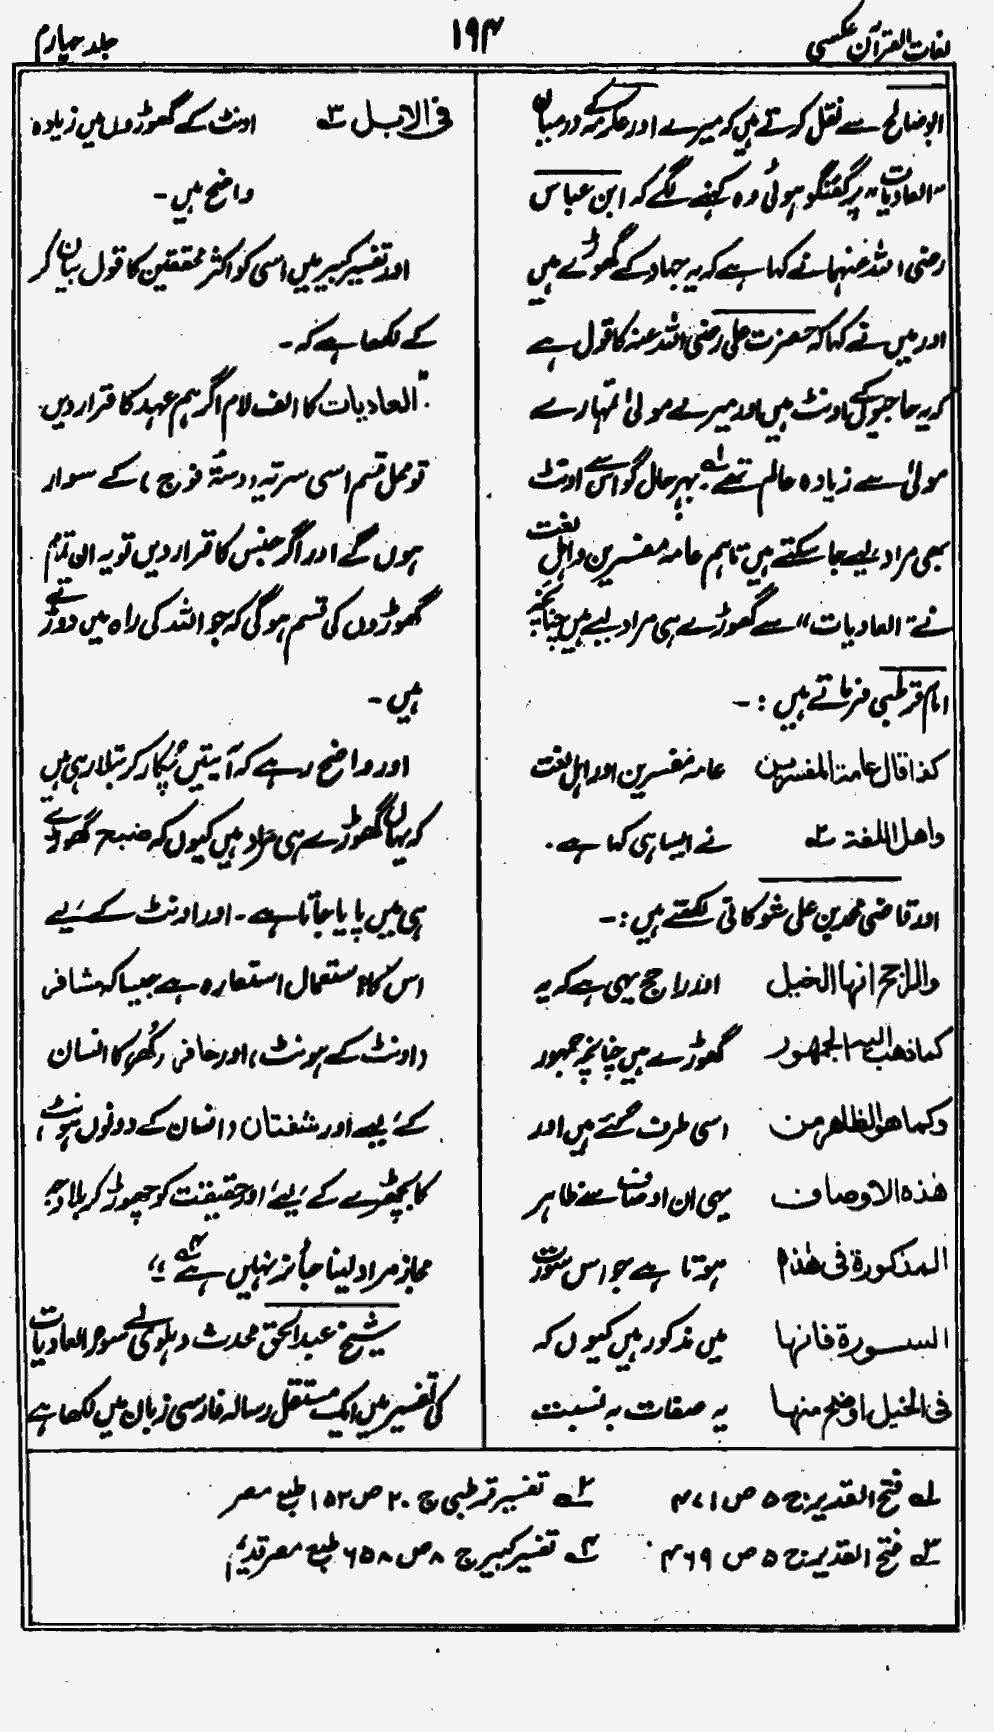 لغات القرآن عکسی
۱۹۴
جلد چہارم
ابوصالح سے نقل کرتے ہیں کہ میرے اور عکرمہ کے درمیان
"العادیات" پر گفتگو ہوئی وہ کہنے لگے کہ ابن عباس
رضی اللہ عنہما نے کہا ہے کہ یہ جہاد کے گھوڑے ہیں
اور میں نے کہا کہ حضرت علی رضی اللہ عنہ کا قول ہے
کہ یہ حاجیوں کے اونٹ ہیں اور میرے مولیٰ تمہارے
مولیٰ سے زیادہ عالم تھے لہ۔ بہرحال گو اس سے اونٹ
بھی مراد لیے جا سکتے ہیں تاہم عامہ مفسرین و اہل لغت
نے "العادیات" سے گھوڑے ہی مراد لیے ہیں چنانچہ
امام قرطبی فرماتے ہیں :-
کذا قال عامة المفسرین عامہ مفسرین اور اہل لغت
واھل اللغة ۲ے نے ایسا ہی کہا ہے۔
اور قاضی محمد بن علی شوکانی لکھتے ہیں :-
والراجح انھا الخیل اور راجح یہی ہے کہ یہ
کما ذھب الیہ الجمھور گھوڑے ہیں چنانچہ جمہور
وکما ھو الظاھر من اسی طرف گئے ہیں اور
ھذہ الاوصاف یہی ان اوصاف سے ظاہر
المذکورة فی ھذہ ہوتا ہے جو اس سورت
السورة فانھا میں مذکور ہیں کیوں کہ
فی الخیل اوضح منھا یہ صفات بہ نسبت
فی الابل ۳ے اونٹ کے گھوڑوں میں زیادہ
واضح ہیں۔
اور تفسیر کبیر میں اسی کو اکثر محققین کا قول بیان کر
کے لکھا ہے کہ۔
"العادیات کا الف لام اگر ہم عہد کا قرار دیں
تو محل قسم اسی سریہ (دستۂ فوج) کے سوار
ہوں گے اور اگر جنس کا قرار دیں تو یہ ان تمام
گھوڑوں کی قسم ہوگی کہ جو اللہ کی راہ میں دوڑتے
ہیں۔
اور واضح رہے کہ آیتیں پکار کر بتلا رہی ہیں
کہ یہاں گھوڑے ہی مراد ہیں کیوں کہ ضبح گھوڑے
ہی میں پایا جاتا ہے۔ اور اونٹ کے لیے
اس کا استعمال استعارہ ہے جیسا کہ مشافر
(اونٹ کے ہونٹ) اور حافر (کھر) کا انسان
کے لیے اور شفتان (انسان کے دونوں ہونٹ)
کا بچھڑے کے لیے اور حقیقت کو چھوڑ کر بلا وجہ
مجاز مراد لینا جائز نہیں ہے ۴ے"
شیخ عبدالحق محدث دہلوی نے سورۂ العادیات
کی تفسیر میں ایک مستقل رسالہ فارسی زبان میں لکھا ہے
لہ فتح القدیر ج ۵ ص ۴۷۱ ۲ے تفسیر قرطبی ج ۲۰ ص ۱۵۲ طبع مصر
۳ے فتح القدیر ج ۵ ص ۴۶۹ ۴ے تفسیر کبیر ج ۸ ص ۶۵۸ طبع مصر قدیم